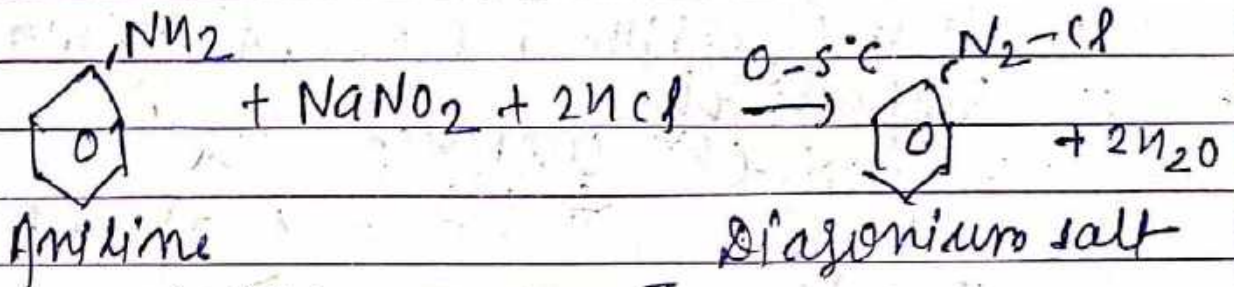 NH2 + NaNO2 + 2HCl 0-5°C → N2-Cl + 2H2O
Aniline Diazonium salt